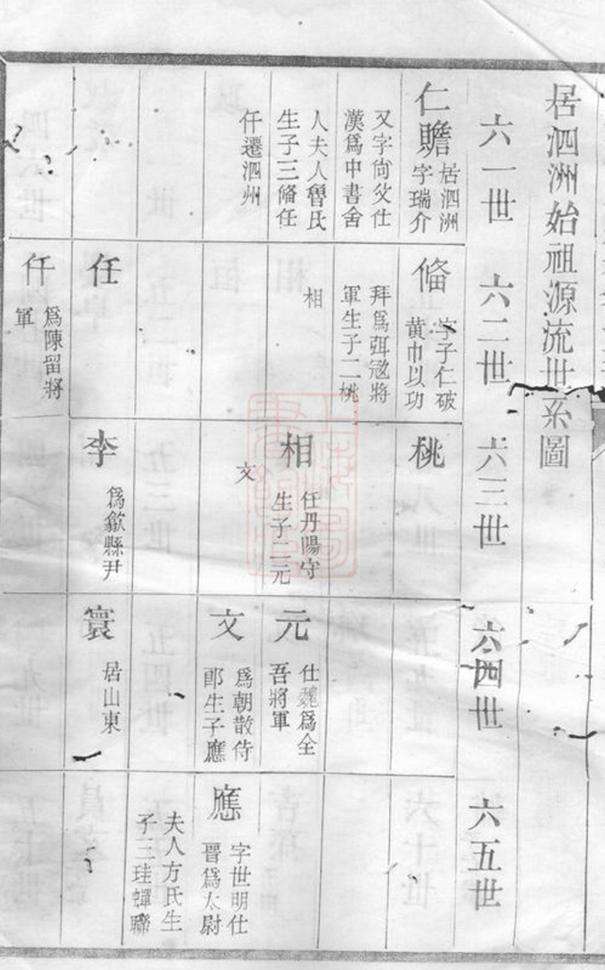 居泗洲始祖源流世系圖
六一世
仁贍
居泗洲
字瑞介
又字向父仕
漢爲中書舍
人夫人魯氏
生子三脩任
仟遷泗州
六二世
脩
字子仁破
黄巾以功
拜爲弭寇將
軍生子二桃
相
任
仟
爲陳留將
軍
六三世
桃
相
任丹陽守
生子二元
文
李
爲歙縣尹
六四世
元
仕魏爲全
吾將軍
文
爲朝散侍
郎生子應
寰
居山東
六五世
應
字世明仕
晉爲太尉
夫人方氏生
子三珪蟬聯